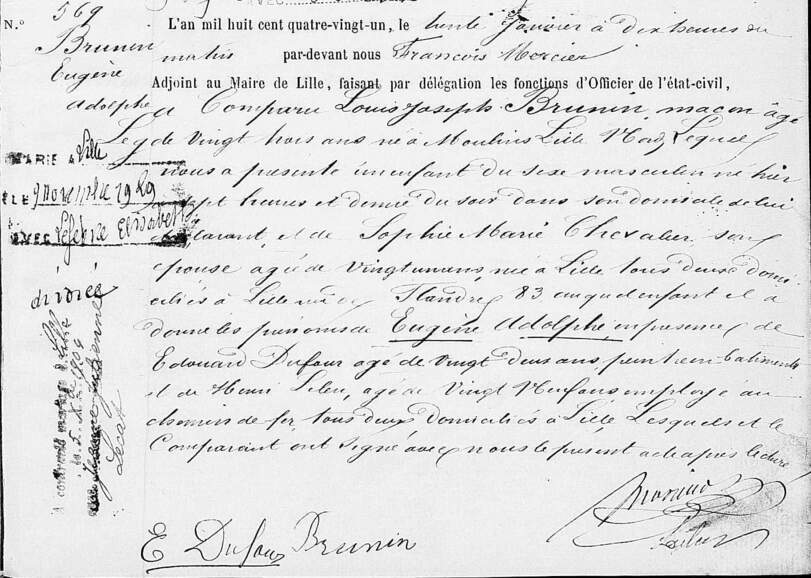 N.º 569
Brunin
Eugène
Adolphe
L'an mil huit cent quatre-vingt-un, le trente Janvier à dix heures du
matin par-devant nous François Mercier
Adjoint au Maire de Lille, faisant par délégation les fonctions d'Officier de l'état-civil,
a Comparu Louis Joseph Brunin, maçon âgé
de Vingt trois ans né à Moulins Lille Nord Lequel
nous a présenté un enfant du sexe masculin né hier
sept heures et demie du soir dans son domicile de lui
déclarant, et de Sophie Marie Chevalier son
épouse agée de Vingt un ans, née à Lille tous deux domi
ciliés à Lille rue de Flandre 83 auquel enfant il a
donné les prénoms de Eugène Adolphe, en présence de
Edouard Dufour agé de vingt deux ans, peintre en batiments
et de Henri Leleu, agé de Vingt Neuf ans employé au
chemin de fer tous deux domiciliés à Lille Lesquels et le
Comparant ont signé avec nous le présent acte après lecture
MARIE à Lille
LE 9 novembre 1929
AVEC Lefebvre Elisabeth
divorcé
a contracté mariage à Lille
Lecat
E Dufour Brunin
Leleu